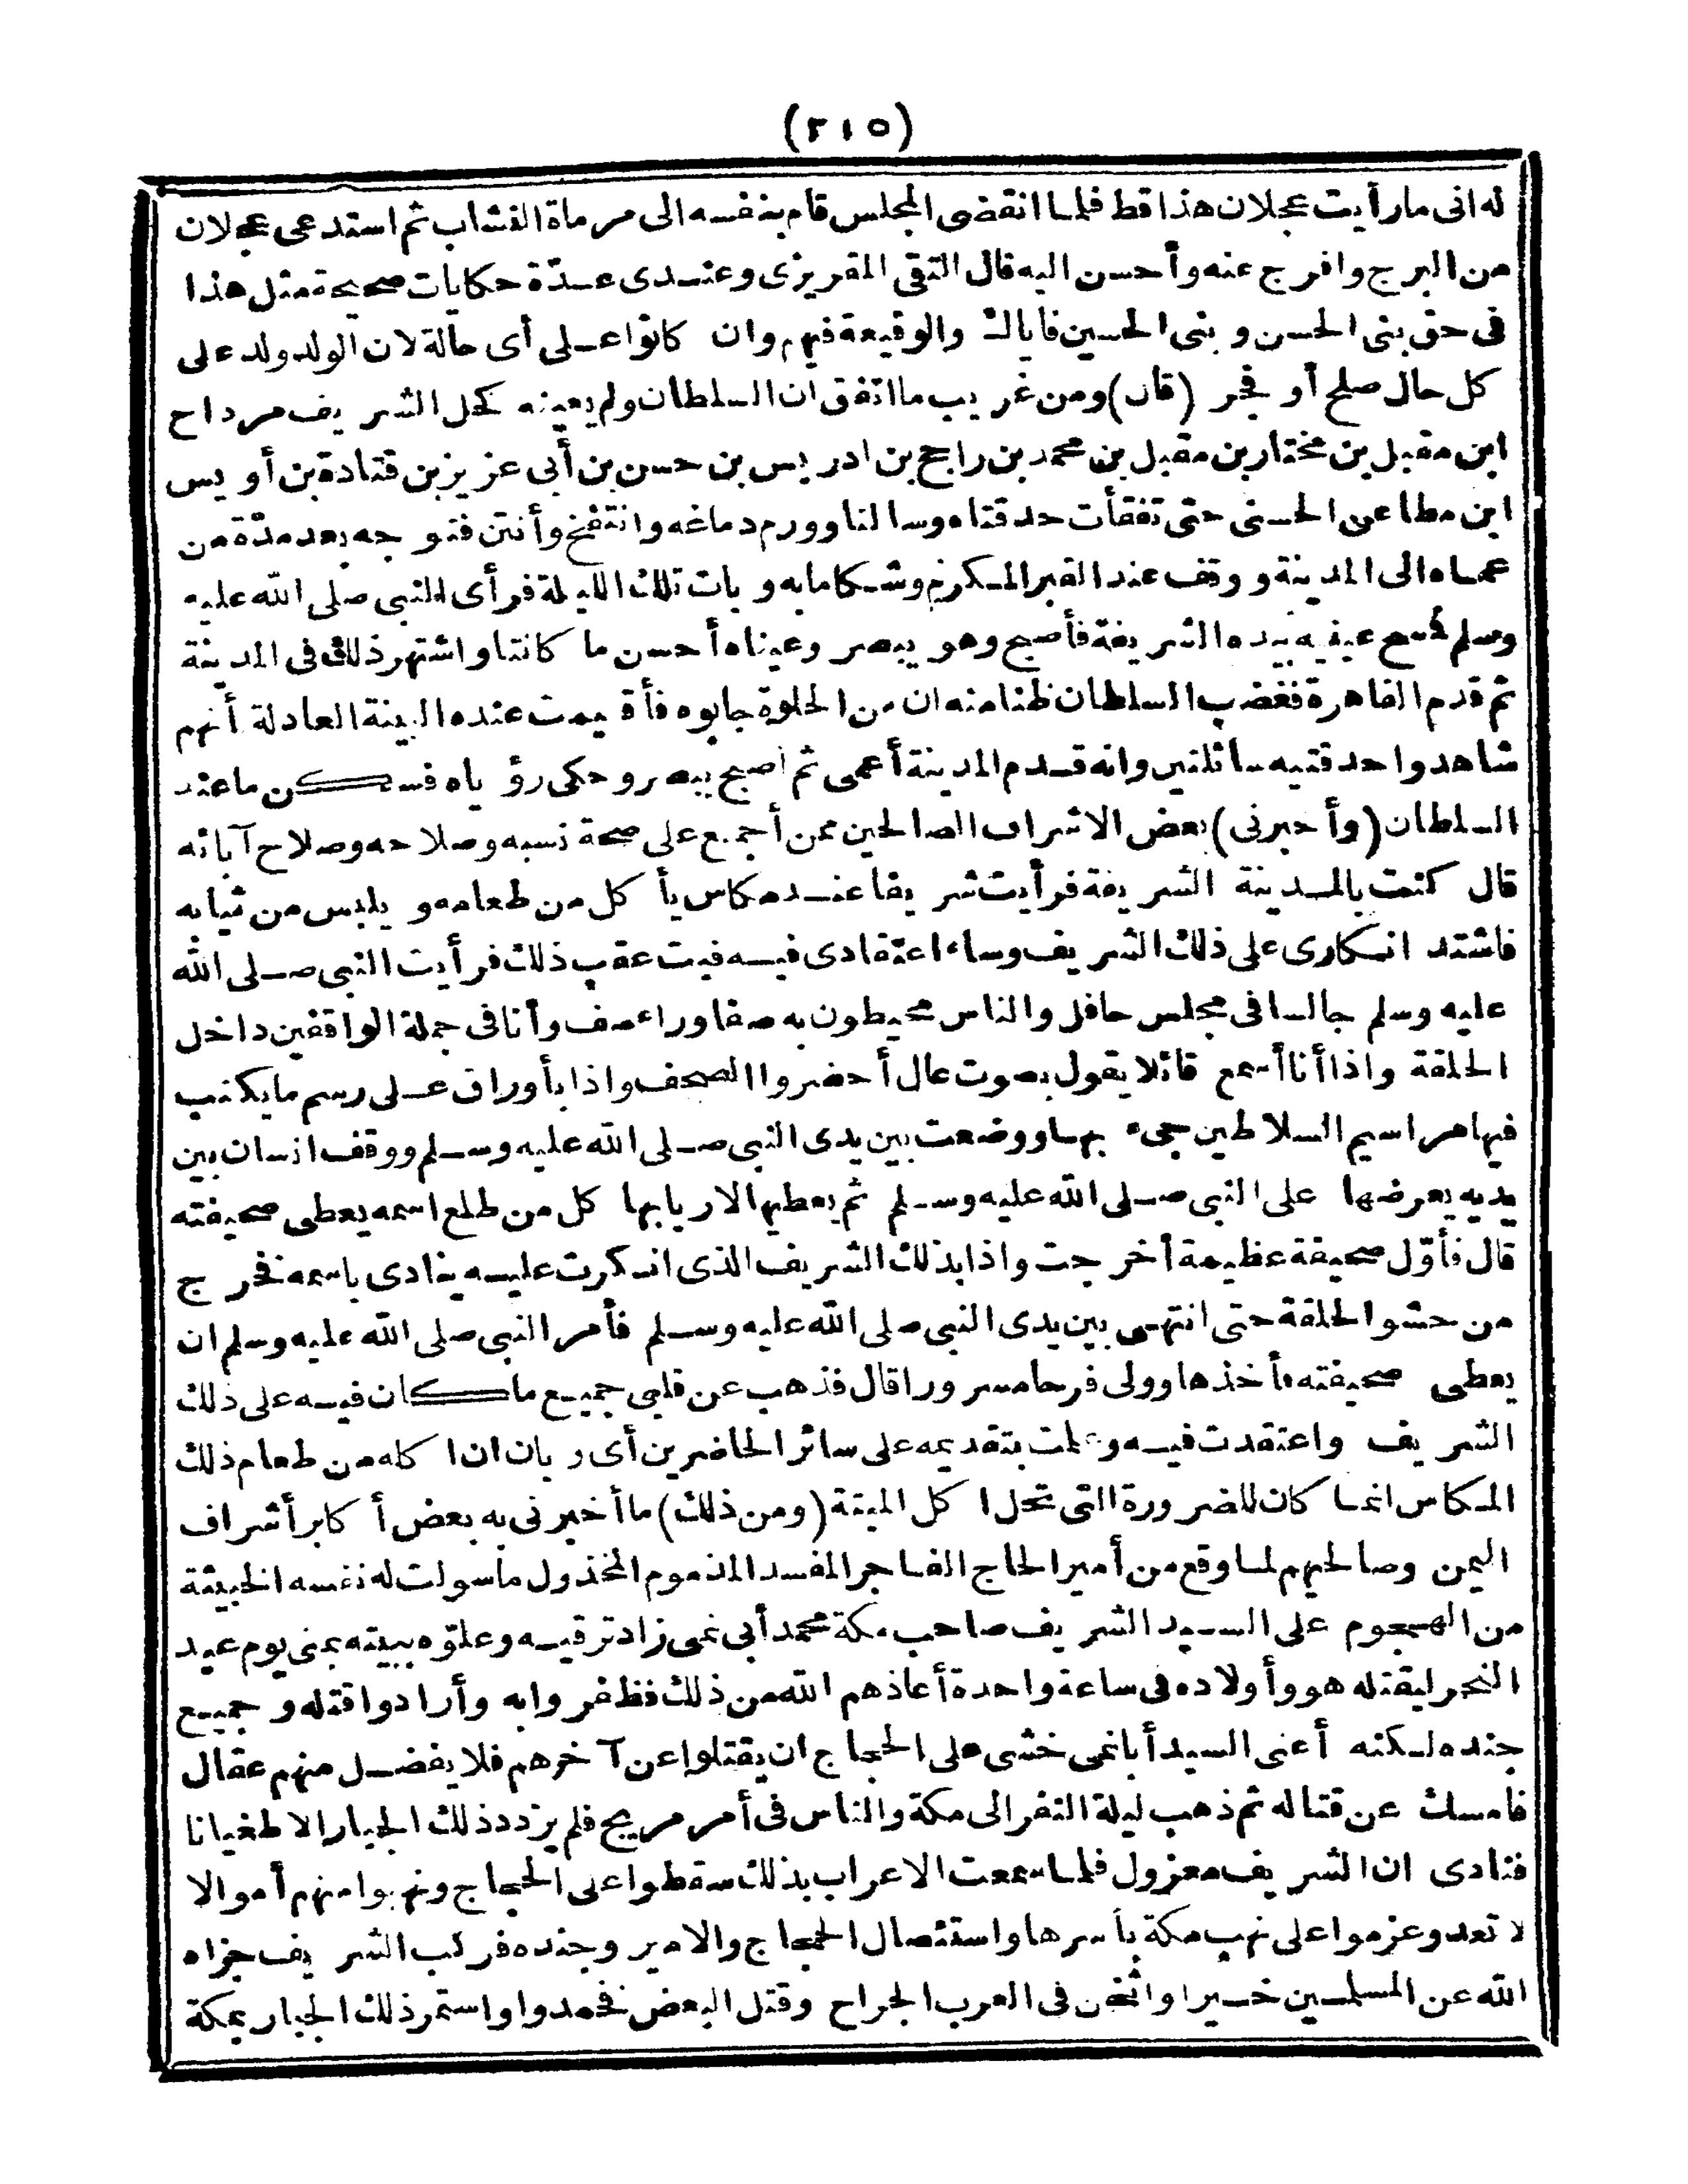 (٢١٥)
له انى مارأيت عجلان هذا قط فلما انقضى المجلس قام بنفسه الى مرماة النشاب ثم استدعى عجلان
من البرج وافرج عنه وأحسن اليه قال التقى المقريزى وعندى عدّة حكايات صحيحة مثل هذا
فى حق بنى الحسن و بنى الحسين فاياك والوقيعة فيهم وان كانوا على أى حالة لان الولد ولد على
كل حال صلح أو فجر (قال) ومن غريب ما اتفق ان السلطان ولم يعينه كحل الشريف مرداح
ابن مقبل بن مختار بن مقبل بن محمد بن راجح بن ادريس بن حسن بن أبى عزيز بن قتادة بن أويس
ابن مطاعن الحسنى حتى تفقأت حدقتاه وسالتا وورم دماغه وانتفخ وأنتن فتوجه بعد مدّة من
عماه الى المدينة ووقف عند القبر المكرم وشكا ما به و بات تلك الليلة فرأى النبى صلى الله عليه
وسلم فمسح عينيه بيده الشريفة فأصبح وهو يبصر وعيناه أحسن ما كانتا واشتهر ذلك فى المدينة
ثم قدم القاهرة فغضب السلطان ظنا منه ان من الحلوة جابوه فأقيمت عنده البينة العادلة أنهم
شاهدوا حدقتيه سائلتين وانه قدم المدينة أعمى ثم أصبح يبصر وحكى رؤياه فسكن ما عند
السلطان (وأخبرنى) بعض الاشراف الصالحين ممن أجمع على صحة نسبه وصلاحه وصلاح آبائه
قال كنت بالمدينة الشريفة فرأيت شريفا عند مكاس يأكل من طعامه و يلبس من ثيابه
فاشتد انكارى على ذلك الشريف وساء اعتقادى فيه فبت عقب ذلك فرأيت النبى صلى الله
عليه وسلم جالسا فى مجلس حافل والناس محيطون به صفا وراء صف وأنا فى جملة الواقفين داخل
الحلقة واذا أنا أسمع قائلا يقول بصوت عال أحضروا الصحف واذا بأوراق على رسم ما يكتب
فيها مراسيم السلاطين جىء بها ووضعت بين يدى النبى صلى الله عليه وسلم ووقف انسان بين
يديه يعرضها على النبى صلى الله عليه وسلم ثم يعطيها لاربابها كل من طلع اسمه يعطى صحيفته
قال فأوّل صحيفة عظيمة أخرجت واذا بذلك الشريف الذى انكرت عليه ينادى باسمه فخرج
من حشو الحلقة حتى انتهى بين يدى النبى صلى الله عليه وسلم فأمر النبى صلى الله عليه وسلم ان
يعطى صحيفته فأخذها وولى فرحا مسرورا قال فذهب عن قلبى جميع ما كان فيه على ذلك
الشريف واعتقدت فيه وعلمت بتقديمه على سائر الحاضرين أى وبان ان اكله من طعام ذلك
المكاس انما كان للضرورة التى تحل اكل الميتة (ومن ذلك) ما أخبرنى به بعض أكابر أشراف
اليمن وصالحيهم لما وقع من أمير الحاج الفاجر المفسد المذموم المخذول ما سولت له نفسه الخبيثة
من الهجوم على السيد الشريف صاحب مكة محمد أبى نمى زاد ترقيه وعلوّه ببيته بمنى يوم عيد
النحر ليقتله هو وأولاده فى ساعة واحدة أعاذهم الله من ذلك فظفروا به وأرادوا قتله و جميع
جنده لكنه أعنى السيد أبا نمى خشى على الحجاج ان يقتلوا عن آخرهم فلا يفضل منهم عقال
فامسك عن قتاله ثم ذهب ليلة النفر الى مكة والناس فى أمر مريج فلم يزدد ذلك الجبار الا طغيانا
فنادى ان الشريف معزول فلما سمعت الاعراب بذلك سقطوا على الحجاج ونهبوا منهم أموالا
لا تعد وعزموا على نهب مكة بأسرها واستئصال الحجاج والامير وجنده فركب الشريف جزاه
الله عن المسلمين خيرا واثخن فى العرب الجراح وقتل البعض فخمدوا واستمر ذلك الجبار بمكة